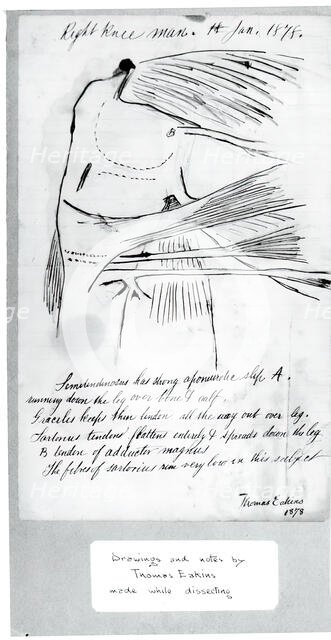 Right Knee man. 14 Jan. 1878.
B
Semitendinosus has strong aponeurotic slip A.
running down the leg over bone & calf.
Gracilis keeps thin tendon all the way out over leg.
Sartorius tendons flattens entirely & spreads down the leg
B tendon of adductor magnus
The fibres of sartorius run very low in this subject
Thomas Eakins
1878
Drawings and notes by
Thomas Eakins
made while dissecting
Heritage
Heritage
Heritage
Heritage